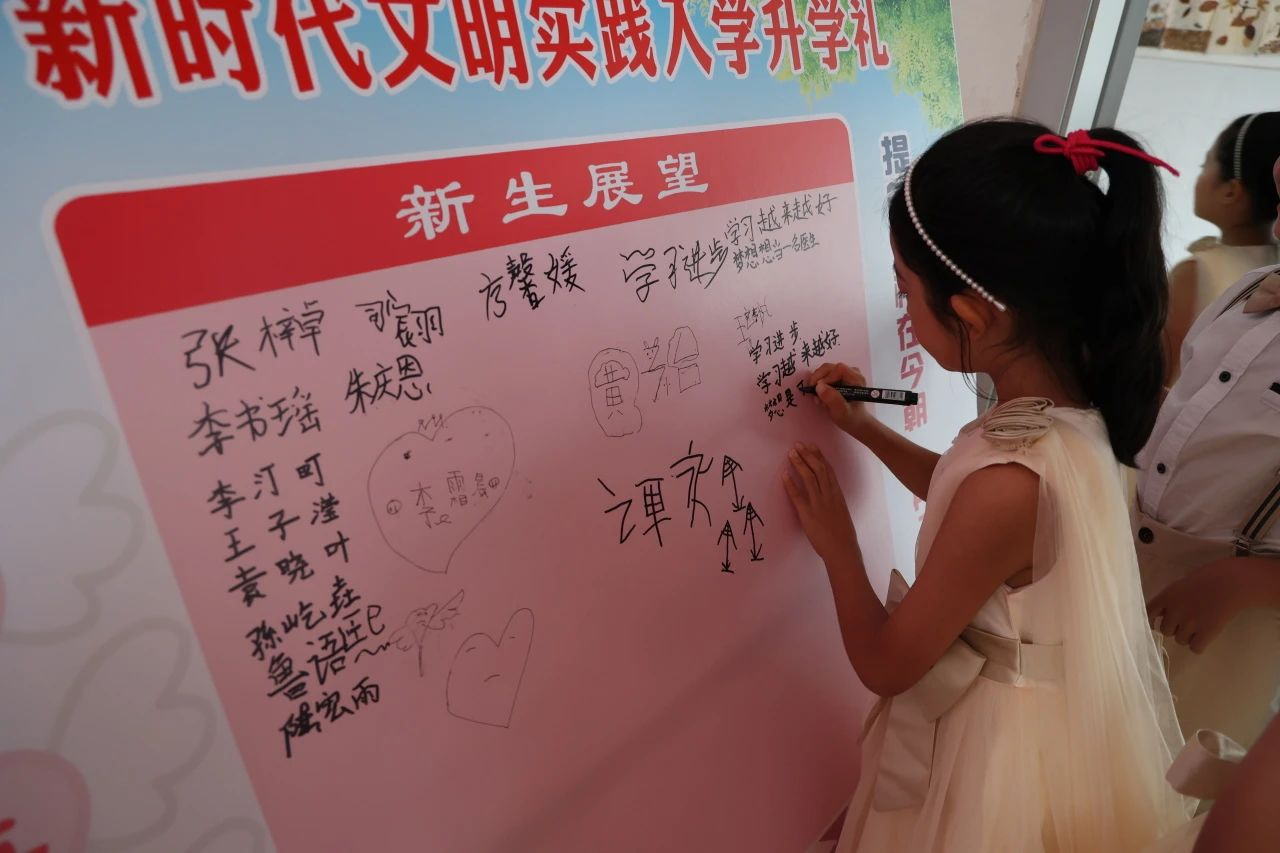 新时代文明实践大学升学礼
新生展望
张梓卓
房馨媛
学习进步
学习越来越好
梦想想当一名医生
李书瑶
朱庆恩
李汀町
王子滢
袁晓叶
孙屹垚
鲁语
宏雨
李霜
黄
谭
学习进步
学习越来越好
梦想是
提
在今朝